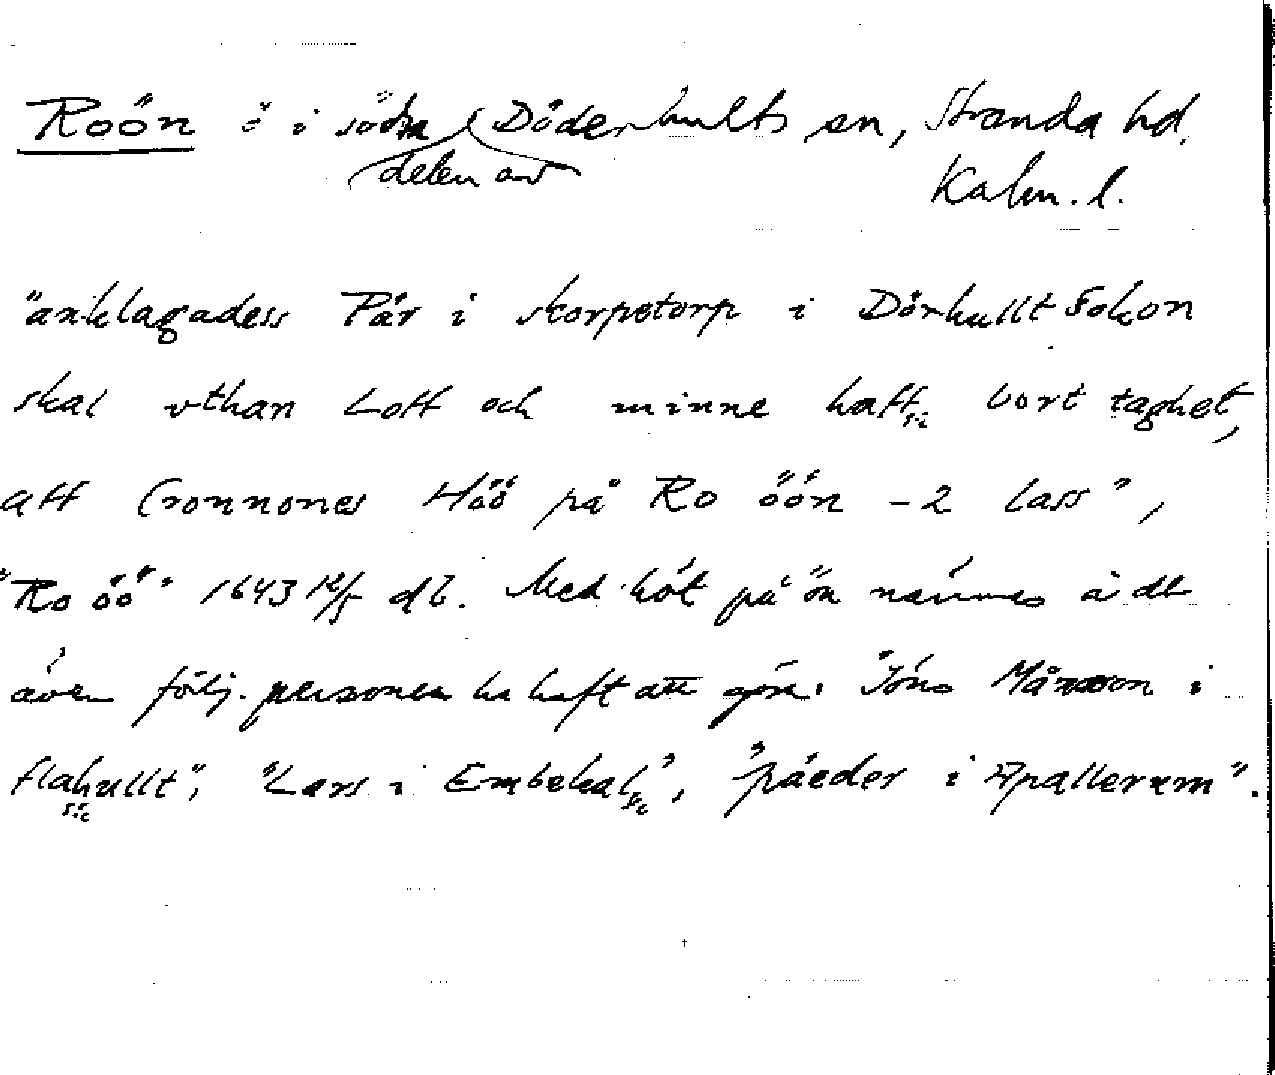 Roön ö i södra Döderhults sn, Stranda hd.
delen av
Kalm. l.
"anklagadess Pär i skorpetorp i Dörhullt Sokon
skal vthan Loff och minne haff bort taghet,
sic
att Cronnones Höö på Ro öön - 2 lass",
"Ro öö" 1643 12/5 db. Med höt på ön nämnes å dt
även följ. personer ha haft att göra "Jöns Månsson i
flahullt", "Lars i Embekal", "päeder i Spallerum".
sic sic